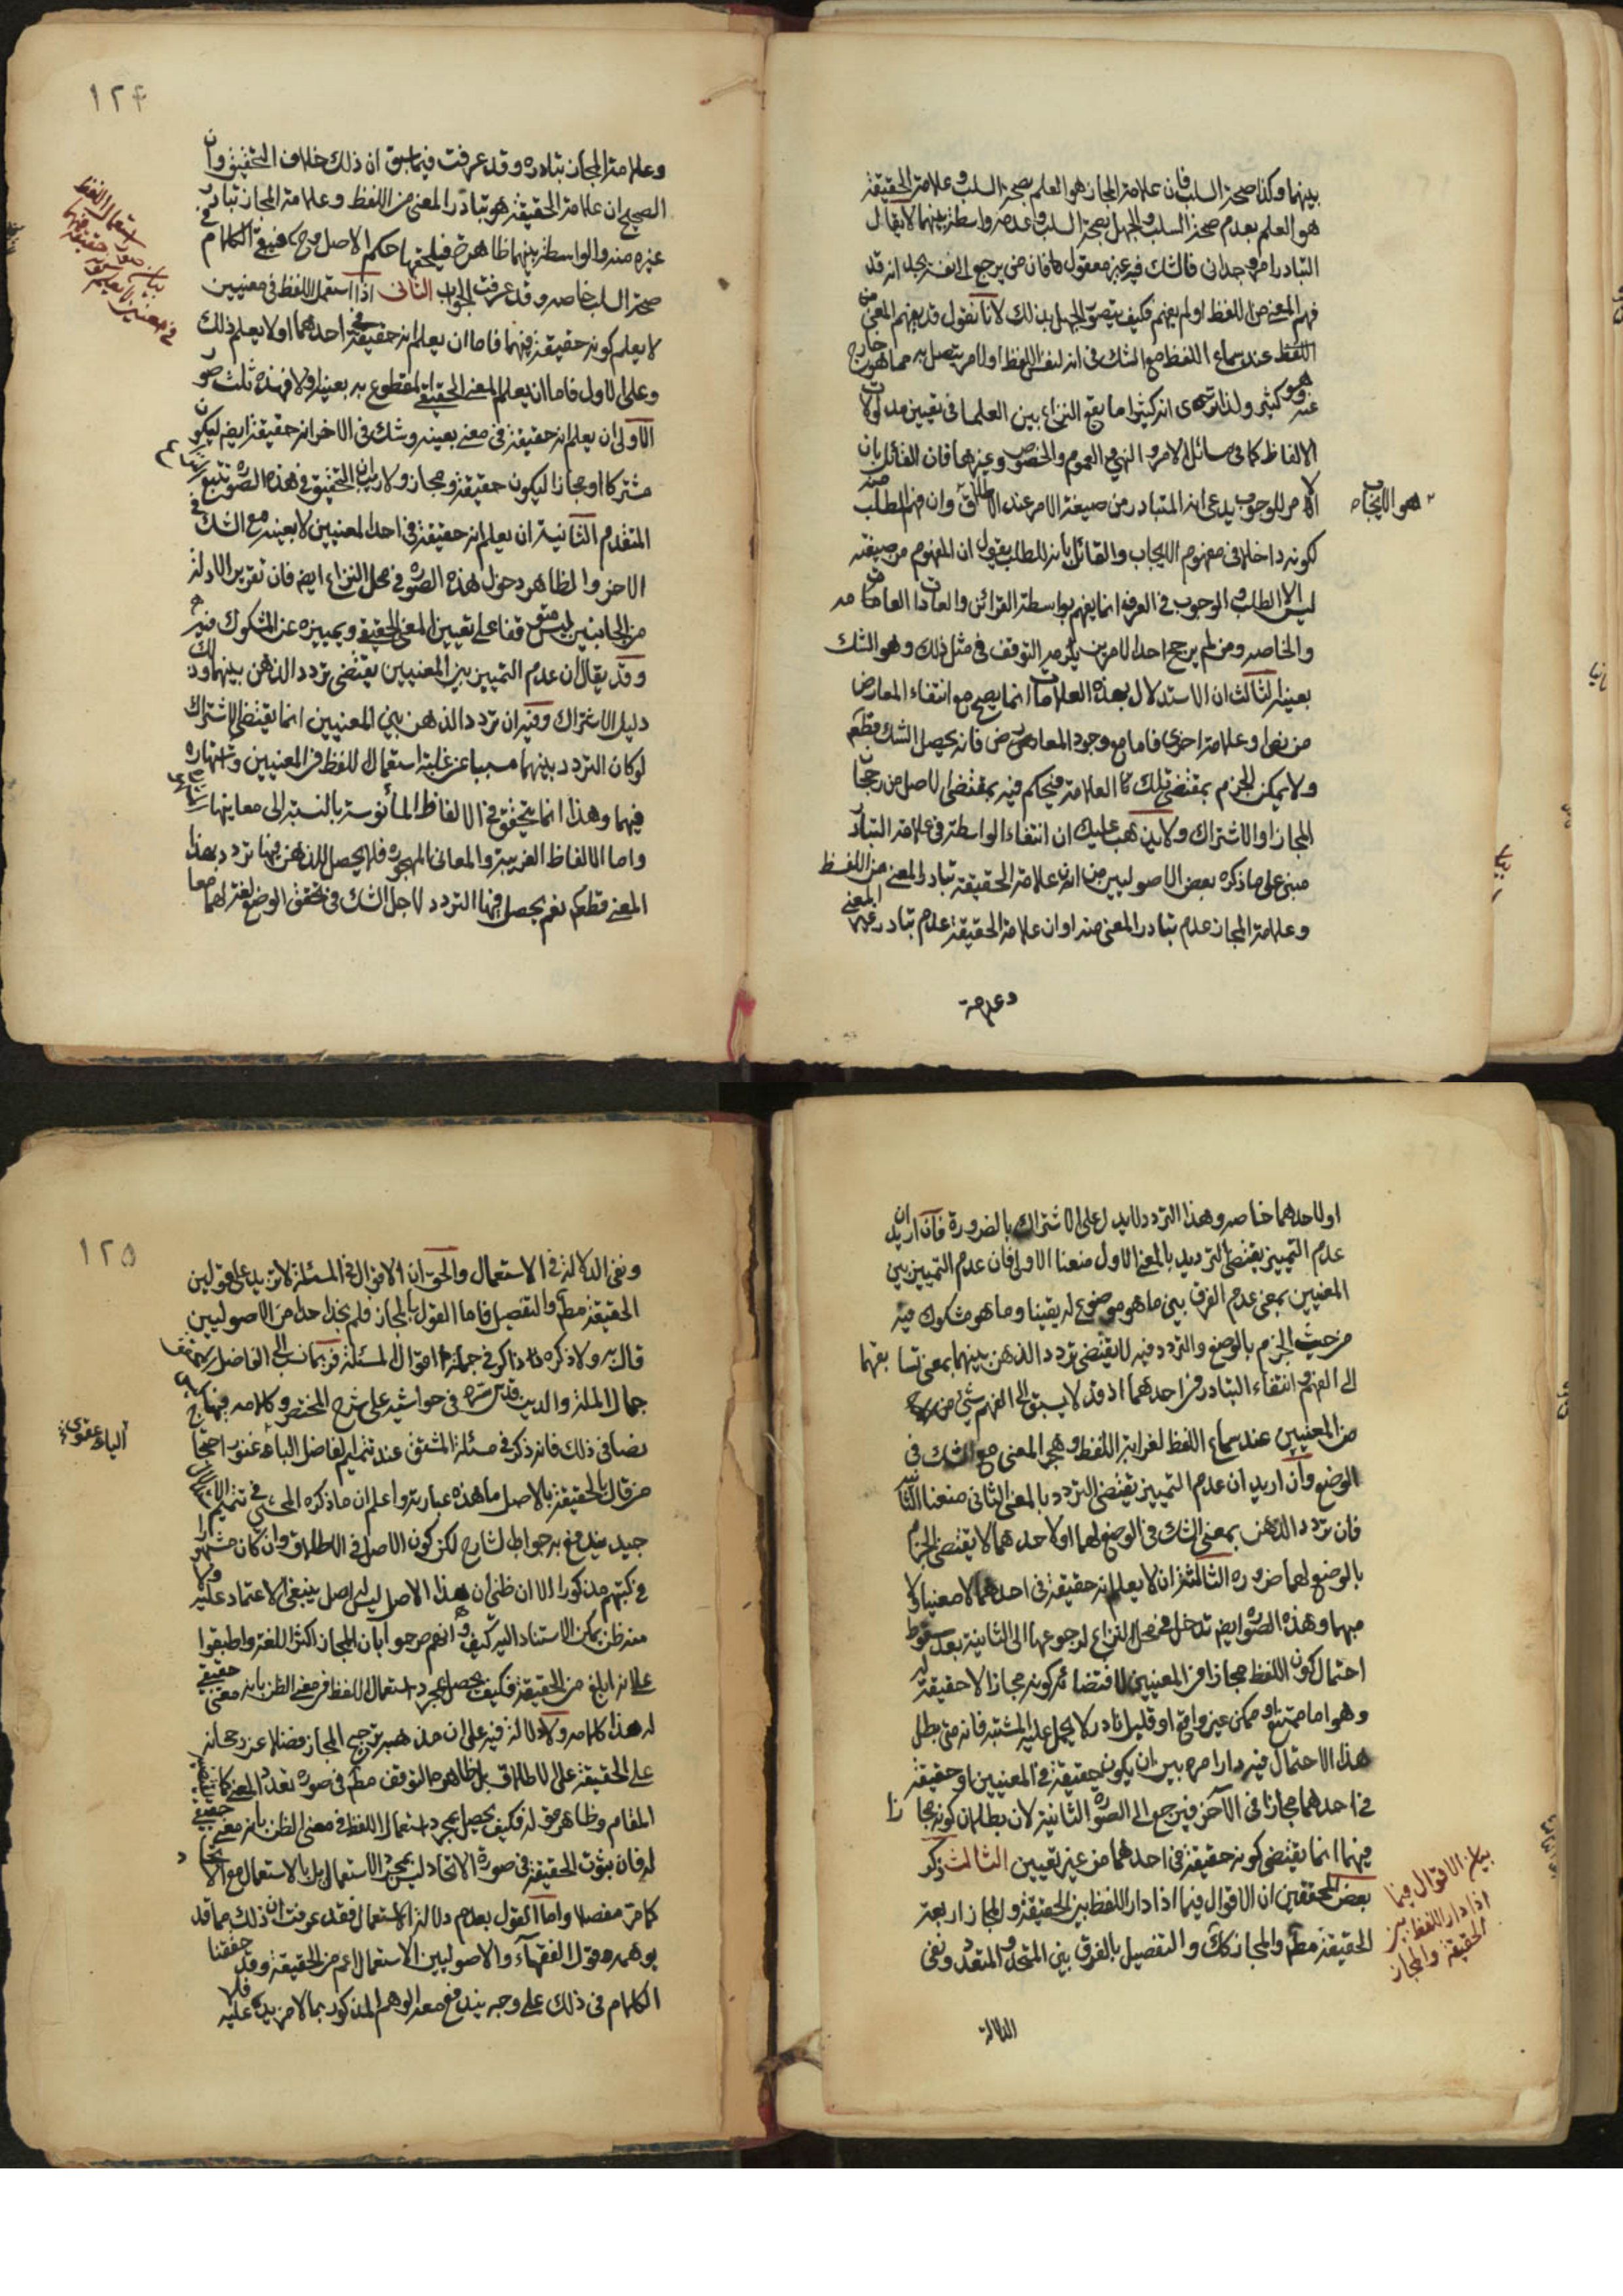 بينهما وكذا صحة السلب فان علامة المجاز هو العلم بصحة السلب وعلامة الحقيقة
هو العلم بعدم صحة السلب والجهل بصحة السلب وعدمه واسطة بينهما لا يقال
التبادر امر وجداني فالشك فيه غير معقول فان من يرجع الى نفسه يجد انه قد
فهم المعنى من اللفظ او لم يفهم فكيف يتصور الجهل بذلك لانا نقول قد يفهم المعنى من
اللفظ عند سماع اللفظ مع الشك في انه لنفس اللفظ او لامر يتصل به مما هو خارج
عنه وهو كثير ولذا ترى انه كثيرا ما يقع النزاع بين العلما في تعيين مدلولات
الالفاظ كما في مسائل الامر والنهي والعموم والخصوص وغيرهما فان القائل بان
الامر للوجوب يدعى ان المتبادر من صيغة الامر عند الاطلاق وان فهم الطلب منه
هو الايجاب
لكونه داخلا في مفهوم الايجاب والقائل بانه للطلب يقول ان المفهوم من صيغته
ليس الا الطلب والوجوب في العرف انما يفهم بواسطة القرائن والعادات العامة
والخاصه ومن لم يرجح احد الامرين يلزمه التوقف في مثل ذلك وهو الشك
بعينه الثالث ان الاستدلال بهذه العلامات انما يصح مع انتفاء المعارض
من نص او علامة اخرى فاما مع وجود المعارض فانه يحصل الشك قطعا
ولا يمكن الجزم بمقتضى تلك العلامة فيحكم فيه بمقتضى الاصل من رجحان
المجاز او الاشتراك ولا يذهب عليك ان انتفاء الواسطة في علامة التبادر
مبنى على ما ذكره بعض الاصوليين من ان علامة الحقيقة تبادر المعنى من اللفظ
وعلامة المجاز عدم تبادر المعنى منه او ان علامة الحقيقة عدم تبادر غير المعنى
وعلامة
١٢٤
وعلامة المجاز تبادره وقد عرفت فيما سبق ان ذلك خلاف التحقيق وان
الصحيح ان علامة الحقيقة هو تبادر المعنى من اللفظ وعلامة المجاز تبادر
غيره منه والواسطة بينهما ظاهرة فيلحقها حكم الاصل وح فيبقى الكلام في
صحة السلب خاصه وقد عرفت الجواب الثاني اذا استعمل اللفظ في معنيين
لا يعلم كونه حقيقة فيهما فاما ان يعلم انه حقيقة في احدهما او لا يعلم ذلك
وعلى الاول فاما ان يعلم المعنى الحقيقي المقطوع به بعينه او لا فهنده ثلث صور
الاولى ان يعلم انه حقيقة في معنى بعينه وشك في الاخر انه حقيقة ايض ليكون
مشتركا او مجازا ليكون حقيقة ومجاز ولا ريب ان التحقيق في هذه الصورة
المتقدم الثانية ان يعلم انه حقيقة في احد المعنيين لا بعينه مع الشك في
الاخر والظاهر دخول هذه الصورة في محل النزاع ايض فان تقرير الادلة
من الجانبين ليس متوقفا على تعيين المعنى الحقيقي وتمييزه عن المشكوك فيه
وقد يقال ان عدم التمييز بين المعنيين يقتضى تردد الذهن بينهما وذلك
دليل الاشتراك وفيه ان تردد الذهن بين المعنيين انما يقتضى الاشتراك
لو كان التردد بينهما مسببا عن غلبة استعمال اللفظ في المعنيين واشتهاره
فيهما وهذا انما يتحقق في الالفاظ المأنوسة بالنسبة الى معانيها
واما الالفاظ الغريبة والمعاني المهجورة فلا يحصل للذهن فيها تردد بهذا
المعنى قطعا نعم يحصل فيها التردد لاجل الشك في تحقق الوضع لغة لهما معا
او لاحدهما خاصه وهذا التردد لا يدل على الاشتراك بالضرورة فان اريد ان
عدم التمييز يقتضى الترديد بالمعنى الاول منعنا الاولى فان عدم التمييز بين
المعنيين بمعنى عدم الفرق بين ما هو موضوع له يقينا وما هو مشكوك فيه
من حيث الجزم بالوضع والتردد فيه لا يقتضى تردد الذهن بينهما بمعنى تسابقهما
الى الفهم وانتفاء التبادر في احدهما اذ قد لا يسبق الى الفهم شيء من
من المعنيين عند سماع اللفظ لغرابة اللفظ وهجر المعنى مع الشك في
الوضع وان اريد ان عدم التمييز يقتضى التردد بالمعنى الثاني منعنا الثانية
فان تردد الذهن بمعنى الشك في الوضع لهما او لاحدهما لا يقتضى الجزم
بالوضع لهما ضرورة الثالثة ان لا يعلم انه حقيقة في احدهما لا معينا ولا
مبهما وهذه الصورة ايض تدخل في محل النزاع لرجوعها الى الثانية بعد سقوط
احتمال كون اللفظ مجازا في المعنيين لاقتضائه كونه مجازا لا حقيقة له
وهو اما ممتنع او ممكن غير واقع او قليل نادر لا يحمل عليه المشتبه فانه متى بطل
هذا الاحتمال فيه دار امره بين ان يكون حقيقة في المعنيين او حقيقة
في احدهما مجازا في الآخر فيرجع الى الصورة الثانية لان بطلان كونه مجازا
فيهما انما يقتضى كونه حقيقة في احدهما من غير تعيين الثالث ذكر
بعض المحققين ان الاقوال فيما اذا دار اللفظ بين الحقيقة والمجاز اربعة
الحقيقة مطم والمجاز كك والتفصيل بالفرق بين المتحد والمتعدد ونفى
بيان الاقوال فيما
اذا دار اللفظ بين
الحقيقة والمجاز
الدلالة
١٢٥
ونفى الدلالة في الاستعمال والحق ان الاقوال في المسئلة لا تزيد على قولين
الحقيقة مطم والتفصيل فاما القول بالمجاز فلم نجد احدا من الاصوليين
قال به ولا ذكره ذاكر في جملة اقوال المسئلة وربما نسب الى الفاضل
جمال الملة والدين قدس سره في حواشيه على شرح المختصر وكلامه فيها
نصا في ذلك فانه ذكر في مسئلة المشتق عند تتميم الفاضل الباغنوى احتجاج
من قال بالحقيقة بالاصل ما هذه عبارته واعلم ان ما ذكره المحشى في تتميم
جيد يندفع به جواب الشارح لكن كون الاصل في الاطلاق وان كان مشهورا
في كتبهم مذكورا الا ان ظنى ان هذا الاصل ليس اصل ينبغى الاعتماد عليه ولا
منه ظن يمكن الاستناد اليه كيف وانهم صرحوا بان المجاز اكثر اللغة واطبقوا
على انه ابلغ من الحقيقة فكيف يحصل بمجرد استعمال اللفظ في معنى الظن بانه معنى حقيقي
له هذا كلامه ولا دلالة فيه على ان مذهبه ترجيح المجاز فضلا عن رجحانه
على الحقيقة على الاطلاق بل ظاهره التوقف مطم في صورة تعدد المعنى
المقام وظاهر قوله فكيف يحصل بمجرد استعمال اللفظ في معنى الظن بانه معنى حقيقي
له فان ثبوت الحقيقة في صورة الاتحاد ليس بمجرد الاستعمال بل بالاستعمال مع الاتحاد
كما مر مفصلا واما القول بعدم دلالة الاستعمال فقد عرفت ان ذلك مما قد
يوهمه قول الفقهاء والاصوليين الاستعمال اعم من الحقيقة وقد حققنا
الكلام في ذلك على وجه يندفع معه الوهم المذكور بما لا مزيد عليه فلا